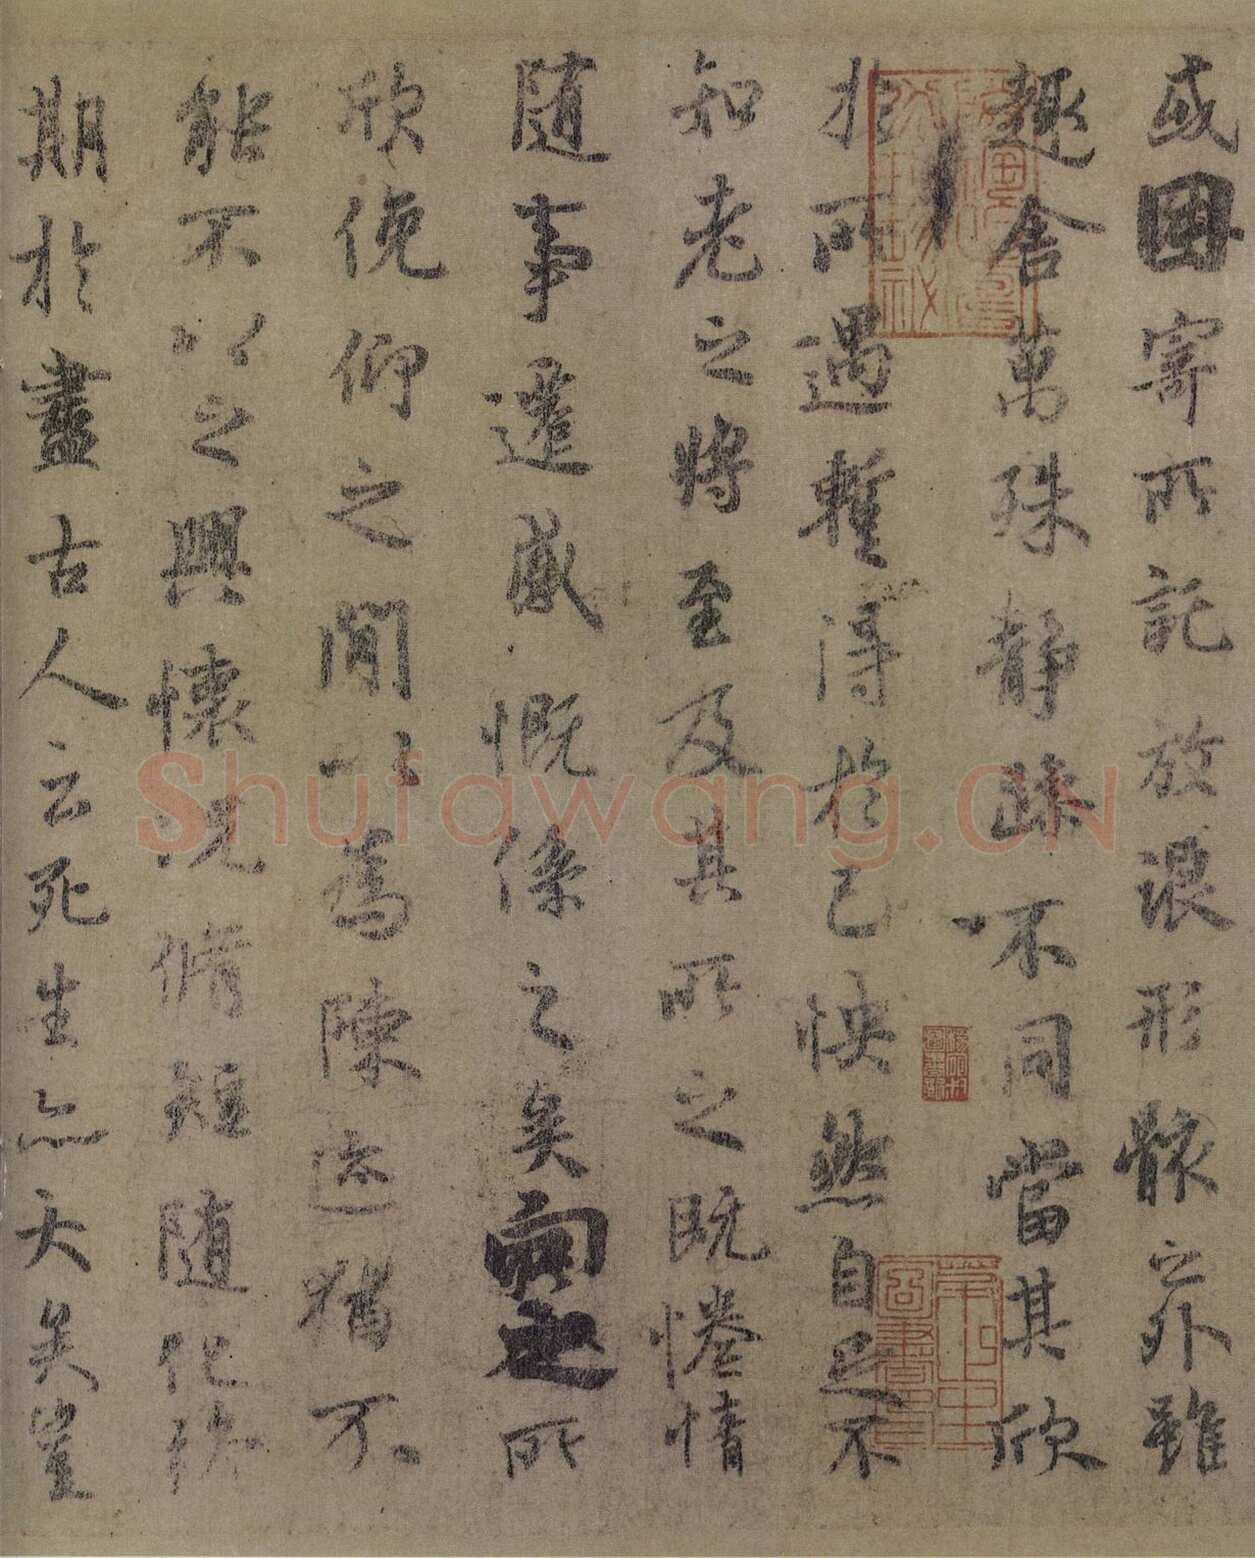 或因寄所託放浪形骸之外雖
趣舍萬殊静躁不同當其欣
於所遇蹔得於己怏然自足不
知老之將至及其所之既惓情
随事遷感慨係之矣向之所
欣俛仰之間以爲陳迹猶不
能不以之興懷況脩短随化終
期於盡古人云死生亦大矣豈
Shufawang.CN